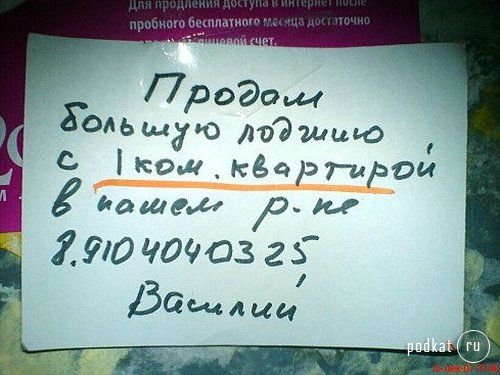 Для продления доступа в интернет после
пробного бесплатного месяца достаточно
счет.
Продам
большую лоджию
с 1 ком. квартирой
в нашем р-не
8.9104040325
Василий
podkat ru